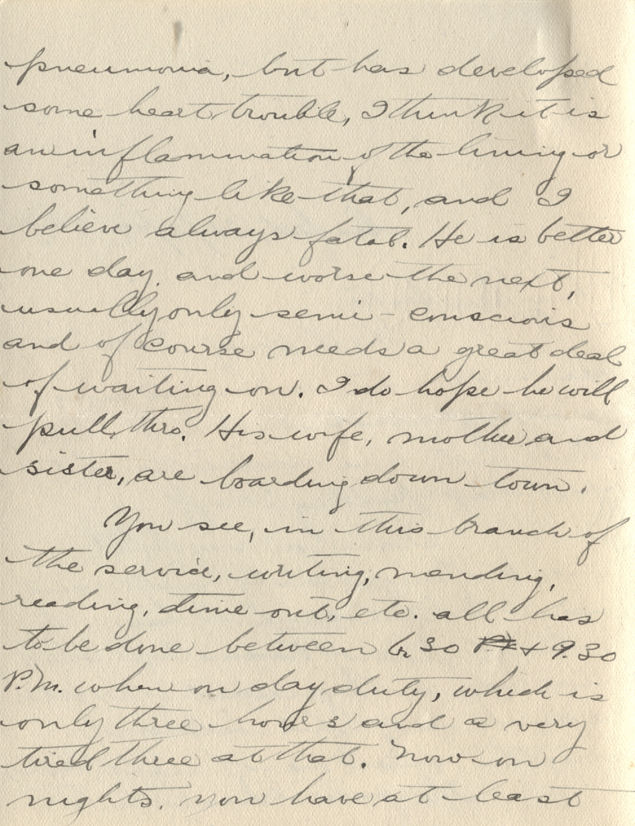 pneumonia, but has developed
some heart trouble, I think it is
an inflammation of the lining or
something like that, and I
believe always fatal. He is better
one day, and worse the next,
usually only semi-conscious
and of course needs a great deal
of waiting on. I do hope he will
pull thro. His wife, mother and
sister, are boarding down-town.
You see, in this branch of
the service, writing, mending,
reading, time out, etc. all has
to be done between 6.30 & 9.30
P.M. when on day duty, which is
only three hours and a very
tired three at that. Now on
nights, you have at least